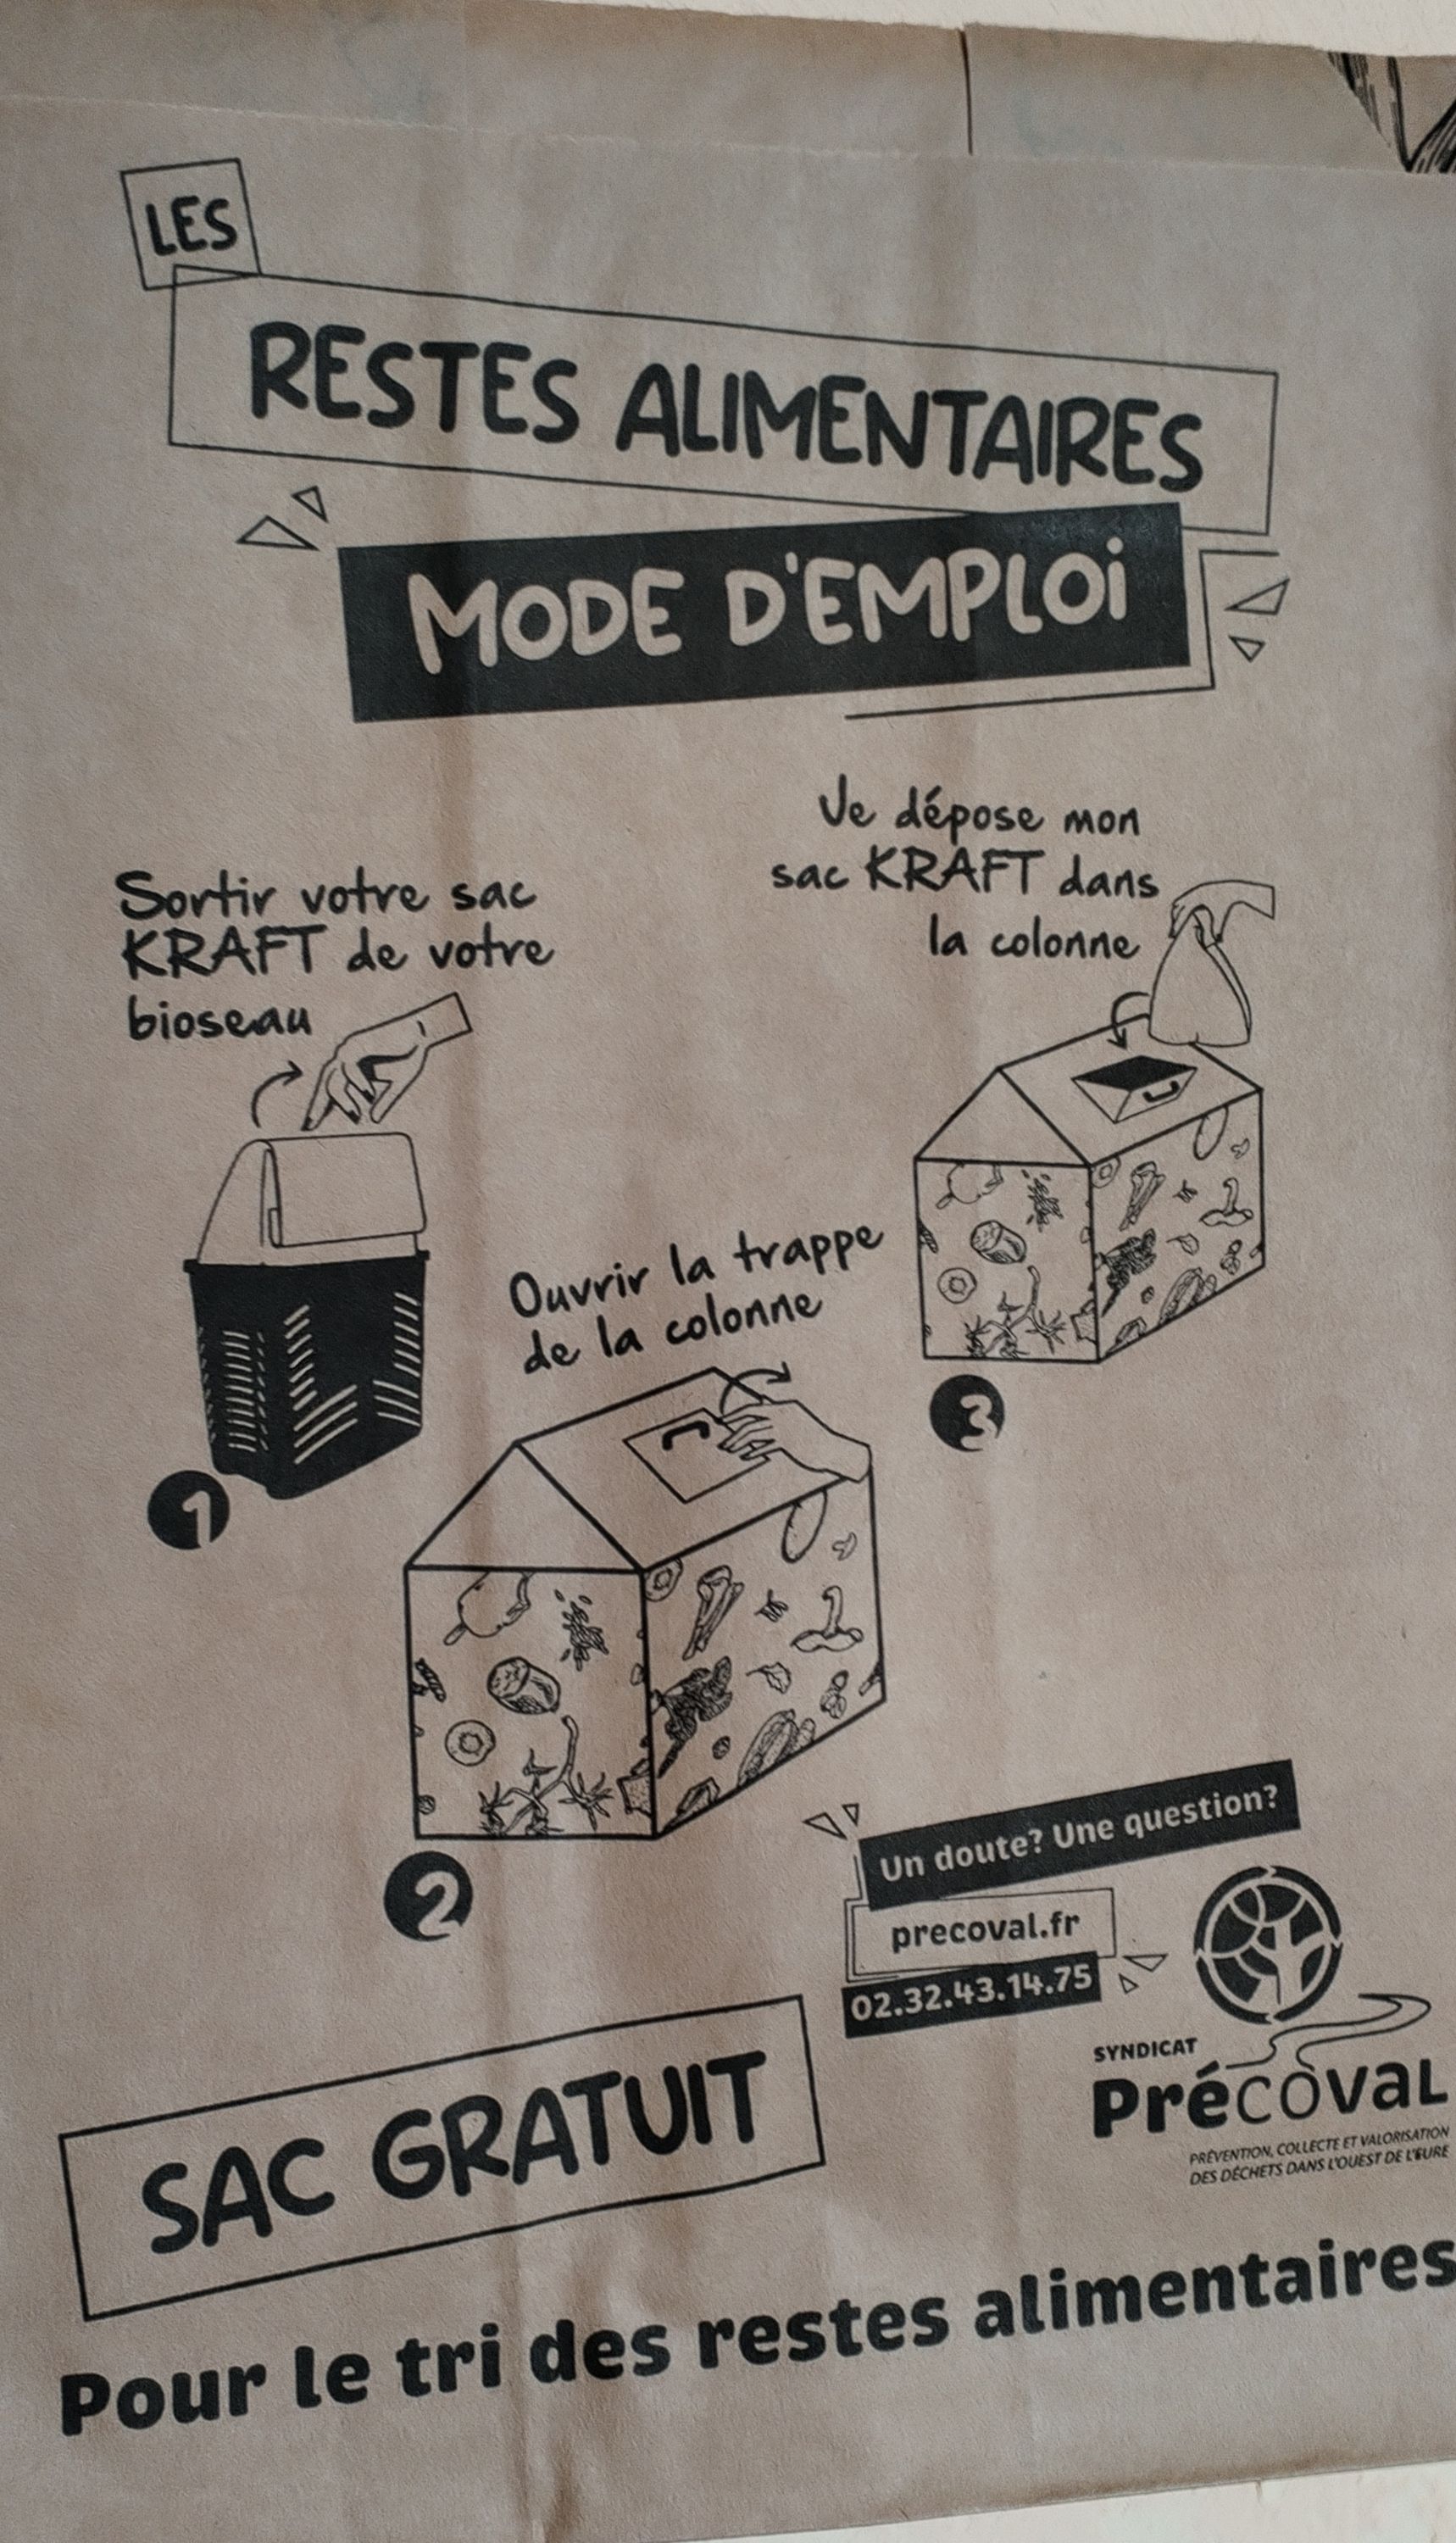 LES
RESTES ALIMENTAIRES
MODE D'EMPLOi
Sortir votre sac
KRAFT de votre
bioseau
1
Ouvrir la trappe
de la colonne
2
Je dépose mon
sac KRAFT dans
la colonne
3
Un doute? Une question?
precoval.fr
02.32.43.14.75
SYNDICAT
PrécovaL
PRÉVENTION, COLLECTE ET VALORISATION
DES DÉCHETS DANS L'OUEST DE L'EURE
SAC GRATUIT
Pour le tri des restes alimentaires